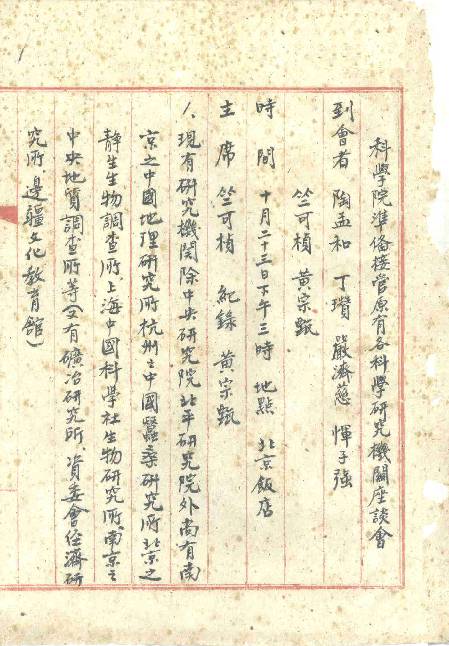 科學院準備接管原有各科學研究機關座談會
到會者 陶孟和 丁瓚 嚴濟慈 惲子強
竺可楨 黃宗甄
時間 十月二十三日下午三時 地點 北京飯店
主席 竺可楨 紀錄 黃宗甄
1、現有研究機関除中央研究院北平研究院外尚有南
京之中國地理研究所杭州之中國蠶桑研究所北京之
静生生物調查所、上海中國科學社生物研究所、南京之
中央地質調查所等(又有礦冶研究所、資委會经濟研
究所、邊疆文化教育館)